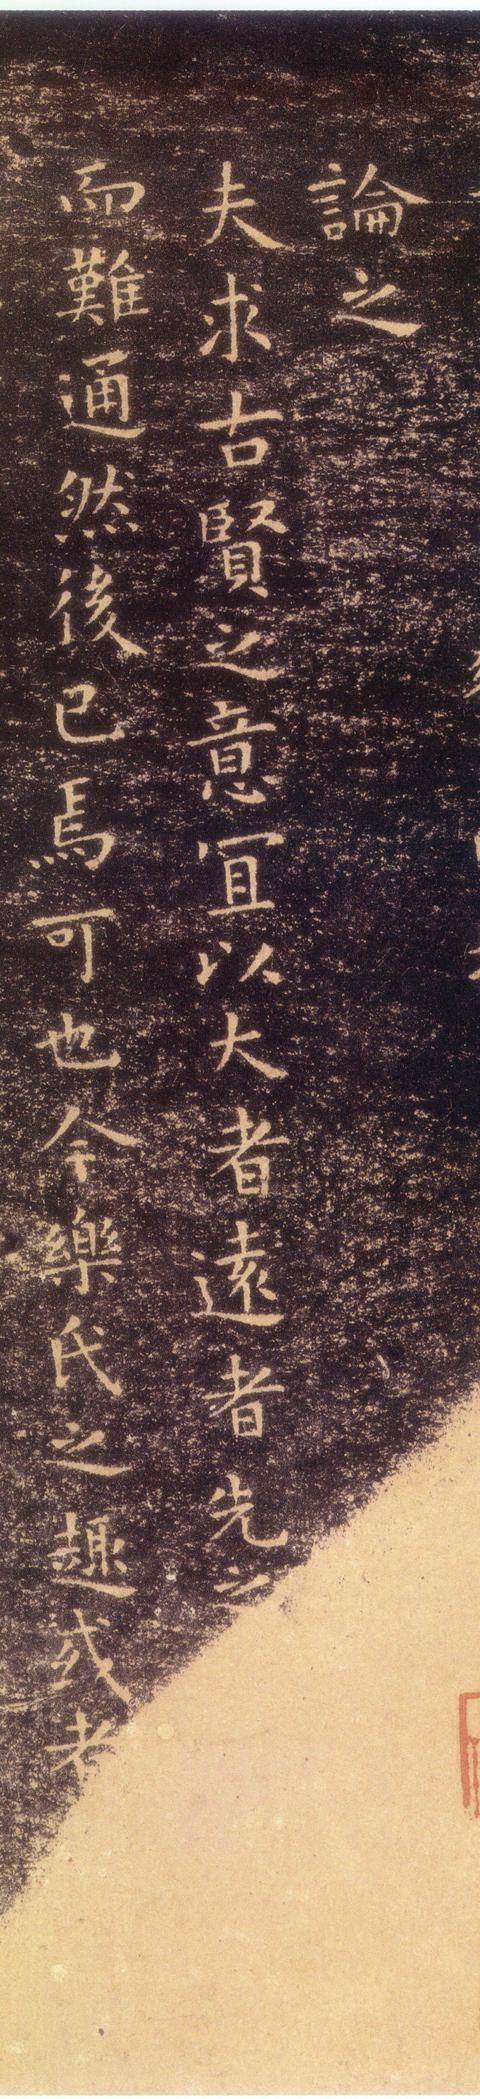 論之
夫求古賢之意宜以大者遠者先之
而難通然後已焉可也今樂氏之趣或者